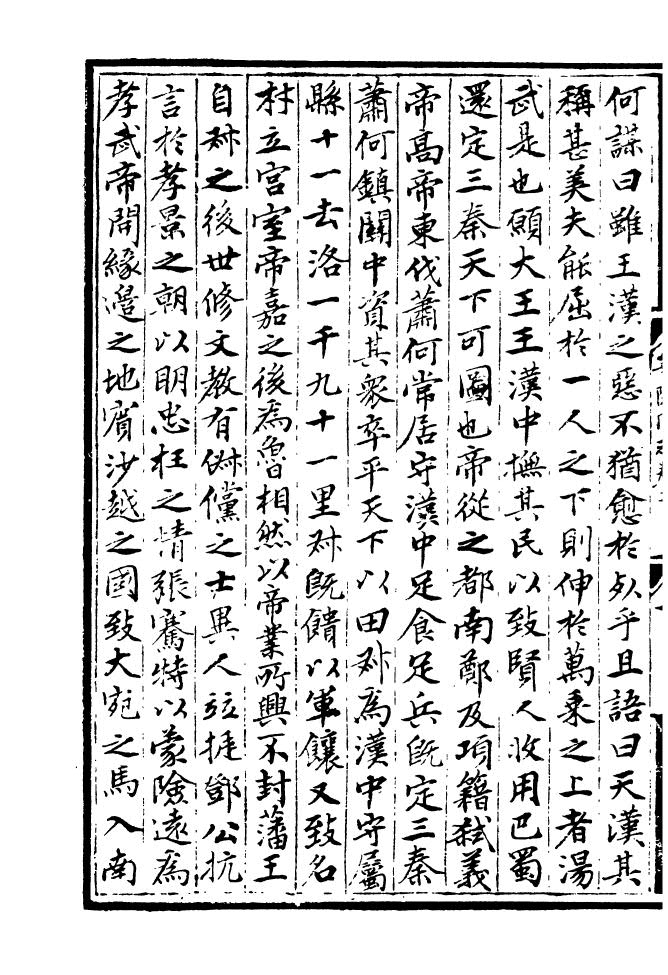 何諌曰雖王漢之惡不猶愈於死乎且語曰天漢其
稱甚美夫能屈於一人之下則伸於萬乗之上者湯
武是也願大王王漢中撫其民以致賢人收用巴蜀
還定三秦天下可圖也帝從之都南鄭及項籍弑義
帝高帝東伐蕭何常居守漢中足食足兵旣定三秦
蕭何鎮關中資其衆卒平天下以田叔為漢中守屬
縣十一去洛一千九十一里叔旣饋以軍饟又致名
材立宫室帝嘉之後為魯相然以帝業所興不封藩王
自叔之後世修文教有俶儻之士異人並挺鄧公抗
言於孝景之朝以明忠枉之情張騫特以蒙險遠為
孝武帝開緣邊之地賓沙越之國致大宛之馬入南